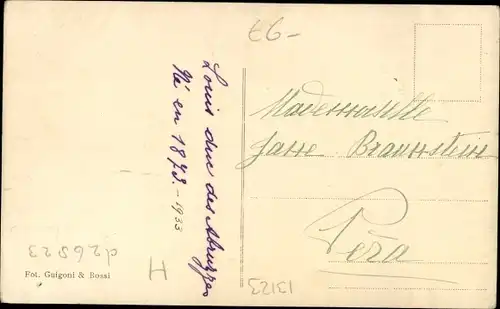 Louis duc des Abruzzes
Né en 1873.-1933
Mademoiselle
Jane Braunstein
Péra
Fot. Guigoni & Bossi
d26523
H
13123